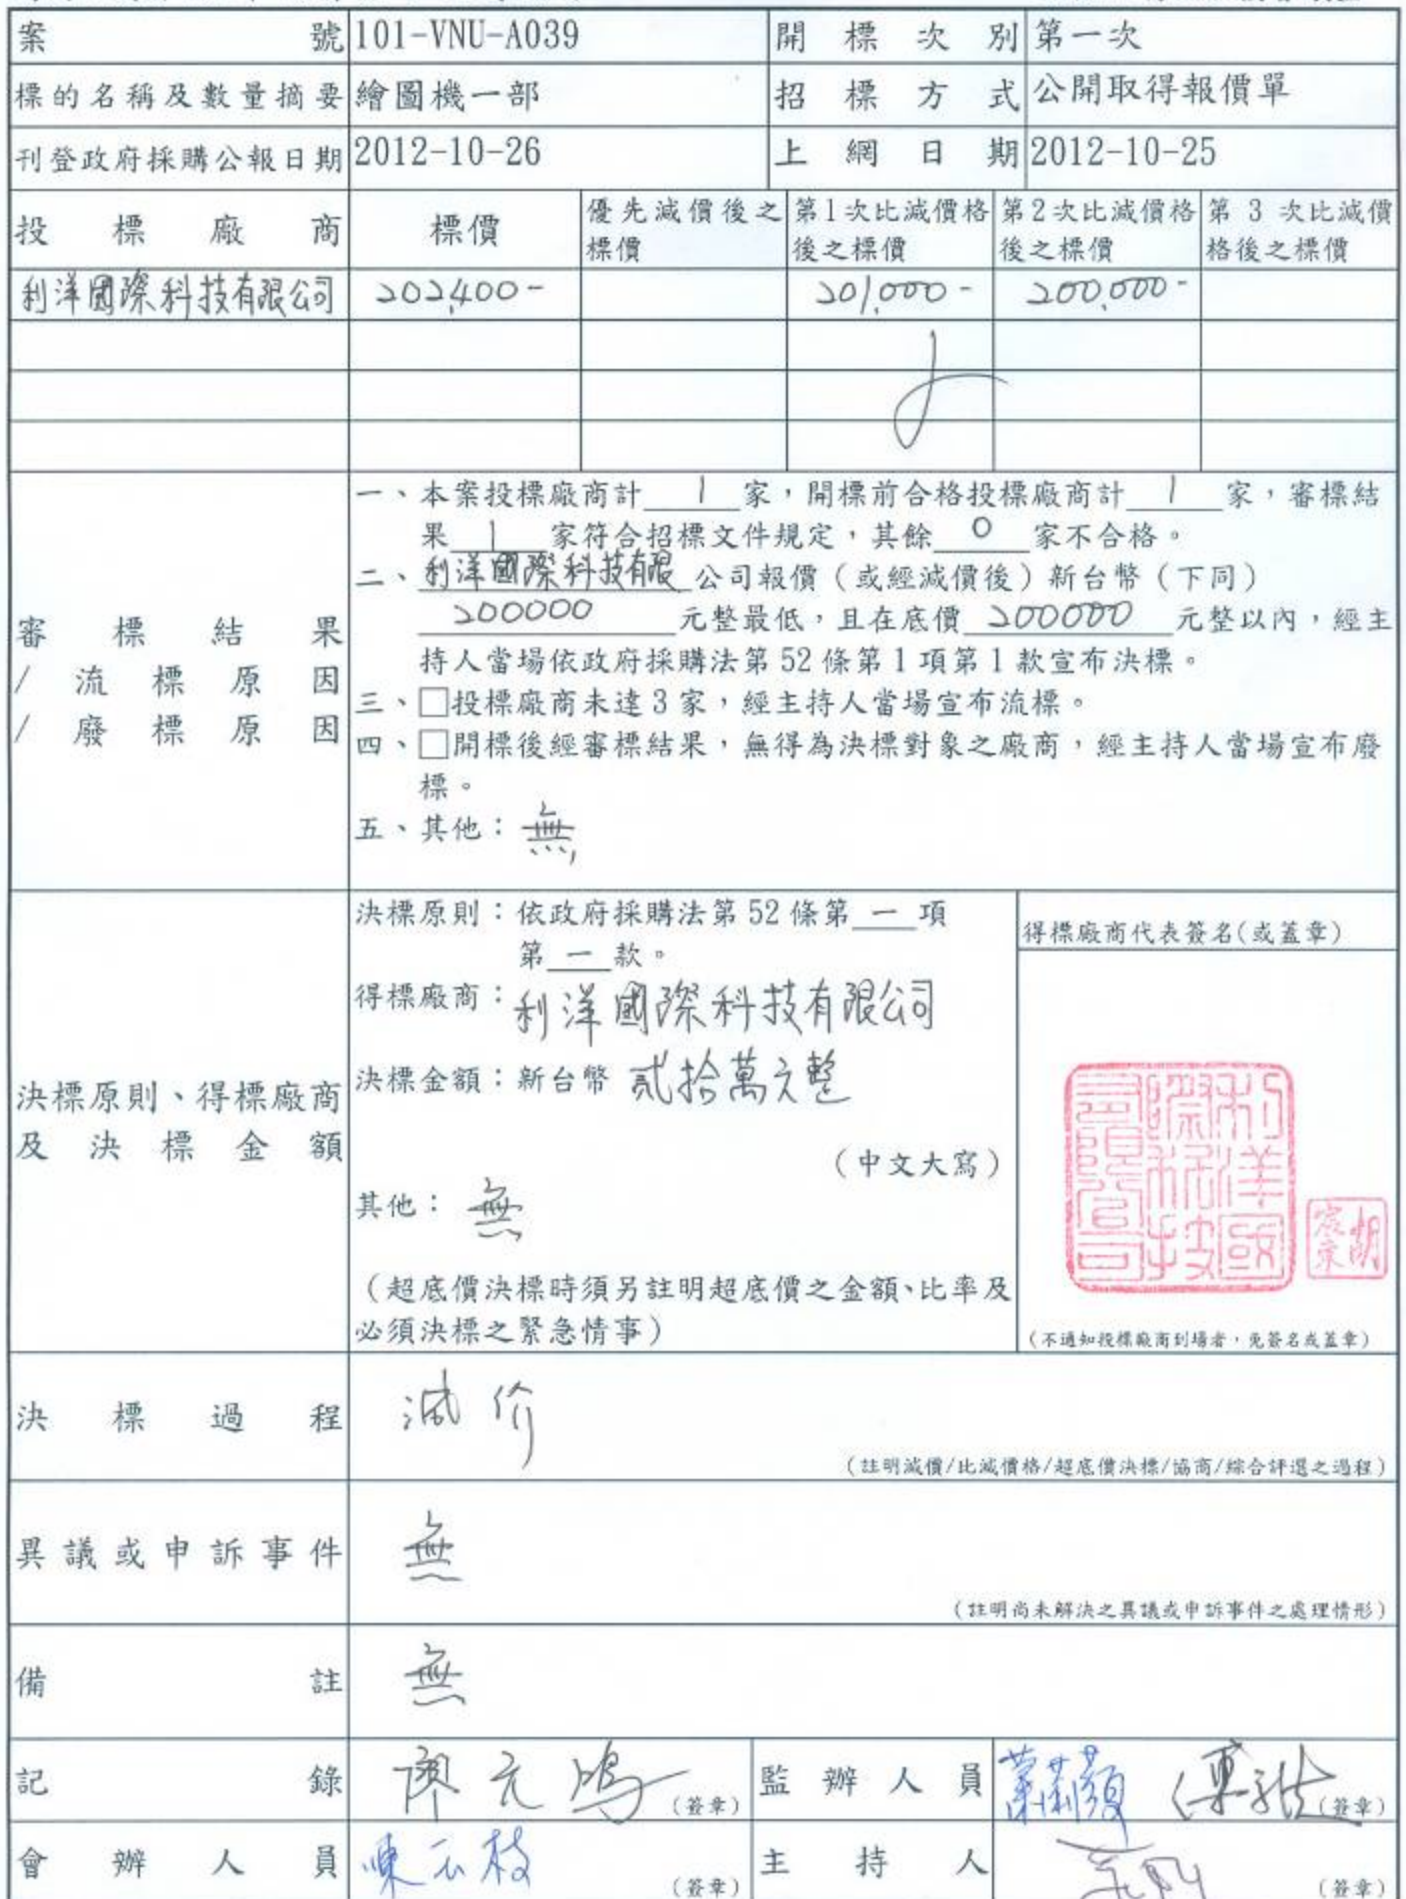 案號 101-VNU-A039 開標次別 第一次
標的名稱及數量摘要 繪圖機一部 招標方式 公開取得報價單
刊登政府採購公報日期 2012-10-26 上網日期 2012-10-25
投標廠商 標價 優先減價後之標價 第1次比減價格後之標價 第2次比減價格後之標價 第3次比減價格後之標價
利洋國際科技有限公司 202,400- 201,000- 200,000-
審標結果
/流標原因
/廢標原因
一、本案投標廠商計 1 家,開標前合格投標廠商計 1 家,審標結
果 1 家符合招標文件規定,其餘 0 家不合格。
二、利洋國際科技有限公司報價(或經減價後)新台幣(下同)
200000 元整最低,且在底價 200000 元整以內,經主
持人當場依政府採購法第52條第1項第1款宣布決標。
三、□投標廠商未達3家,經主持人當場宣布流標。
四、□開標後經審標結果,無得為決標對象之廠商,經主持人當場宣布廢
標。
五、其他:無
決標原則、得標廠商
及決標金額
決標原則:依政府採購法第52條第一項
第一款。
得標廠商:利洋國際科技有限公司
決標金額:新台幣 貳拾萬元整
(中文大寫)
其他:無
(超底價決標時須另註明超底價之金額、比率及
必須決標之緊急情事)
得標廠商代表簽名(或蓋章)
利洋國
際科技
有限公司
(不通知投標廠商到場者,免簽名或蓋章)
決標過程 減价
(註明減價/比減價格/超底價決標/協商/綜合評選之過程)
異議或申訴事件 無
(註明尚未解決之異議或申訴事件之處理情形)
備註 無
記錄 廖元鴻 (簽章) 監辦人員 (簽章)
會辦人員 陳云枝 (簽章) 主持人 (簽章)